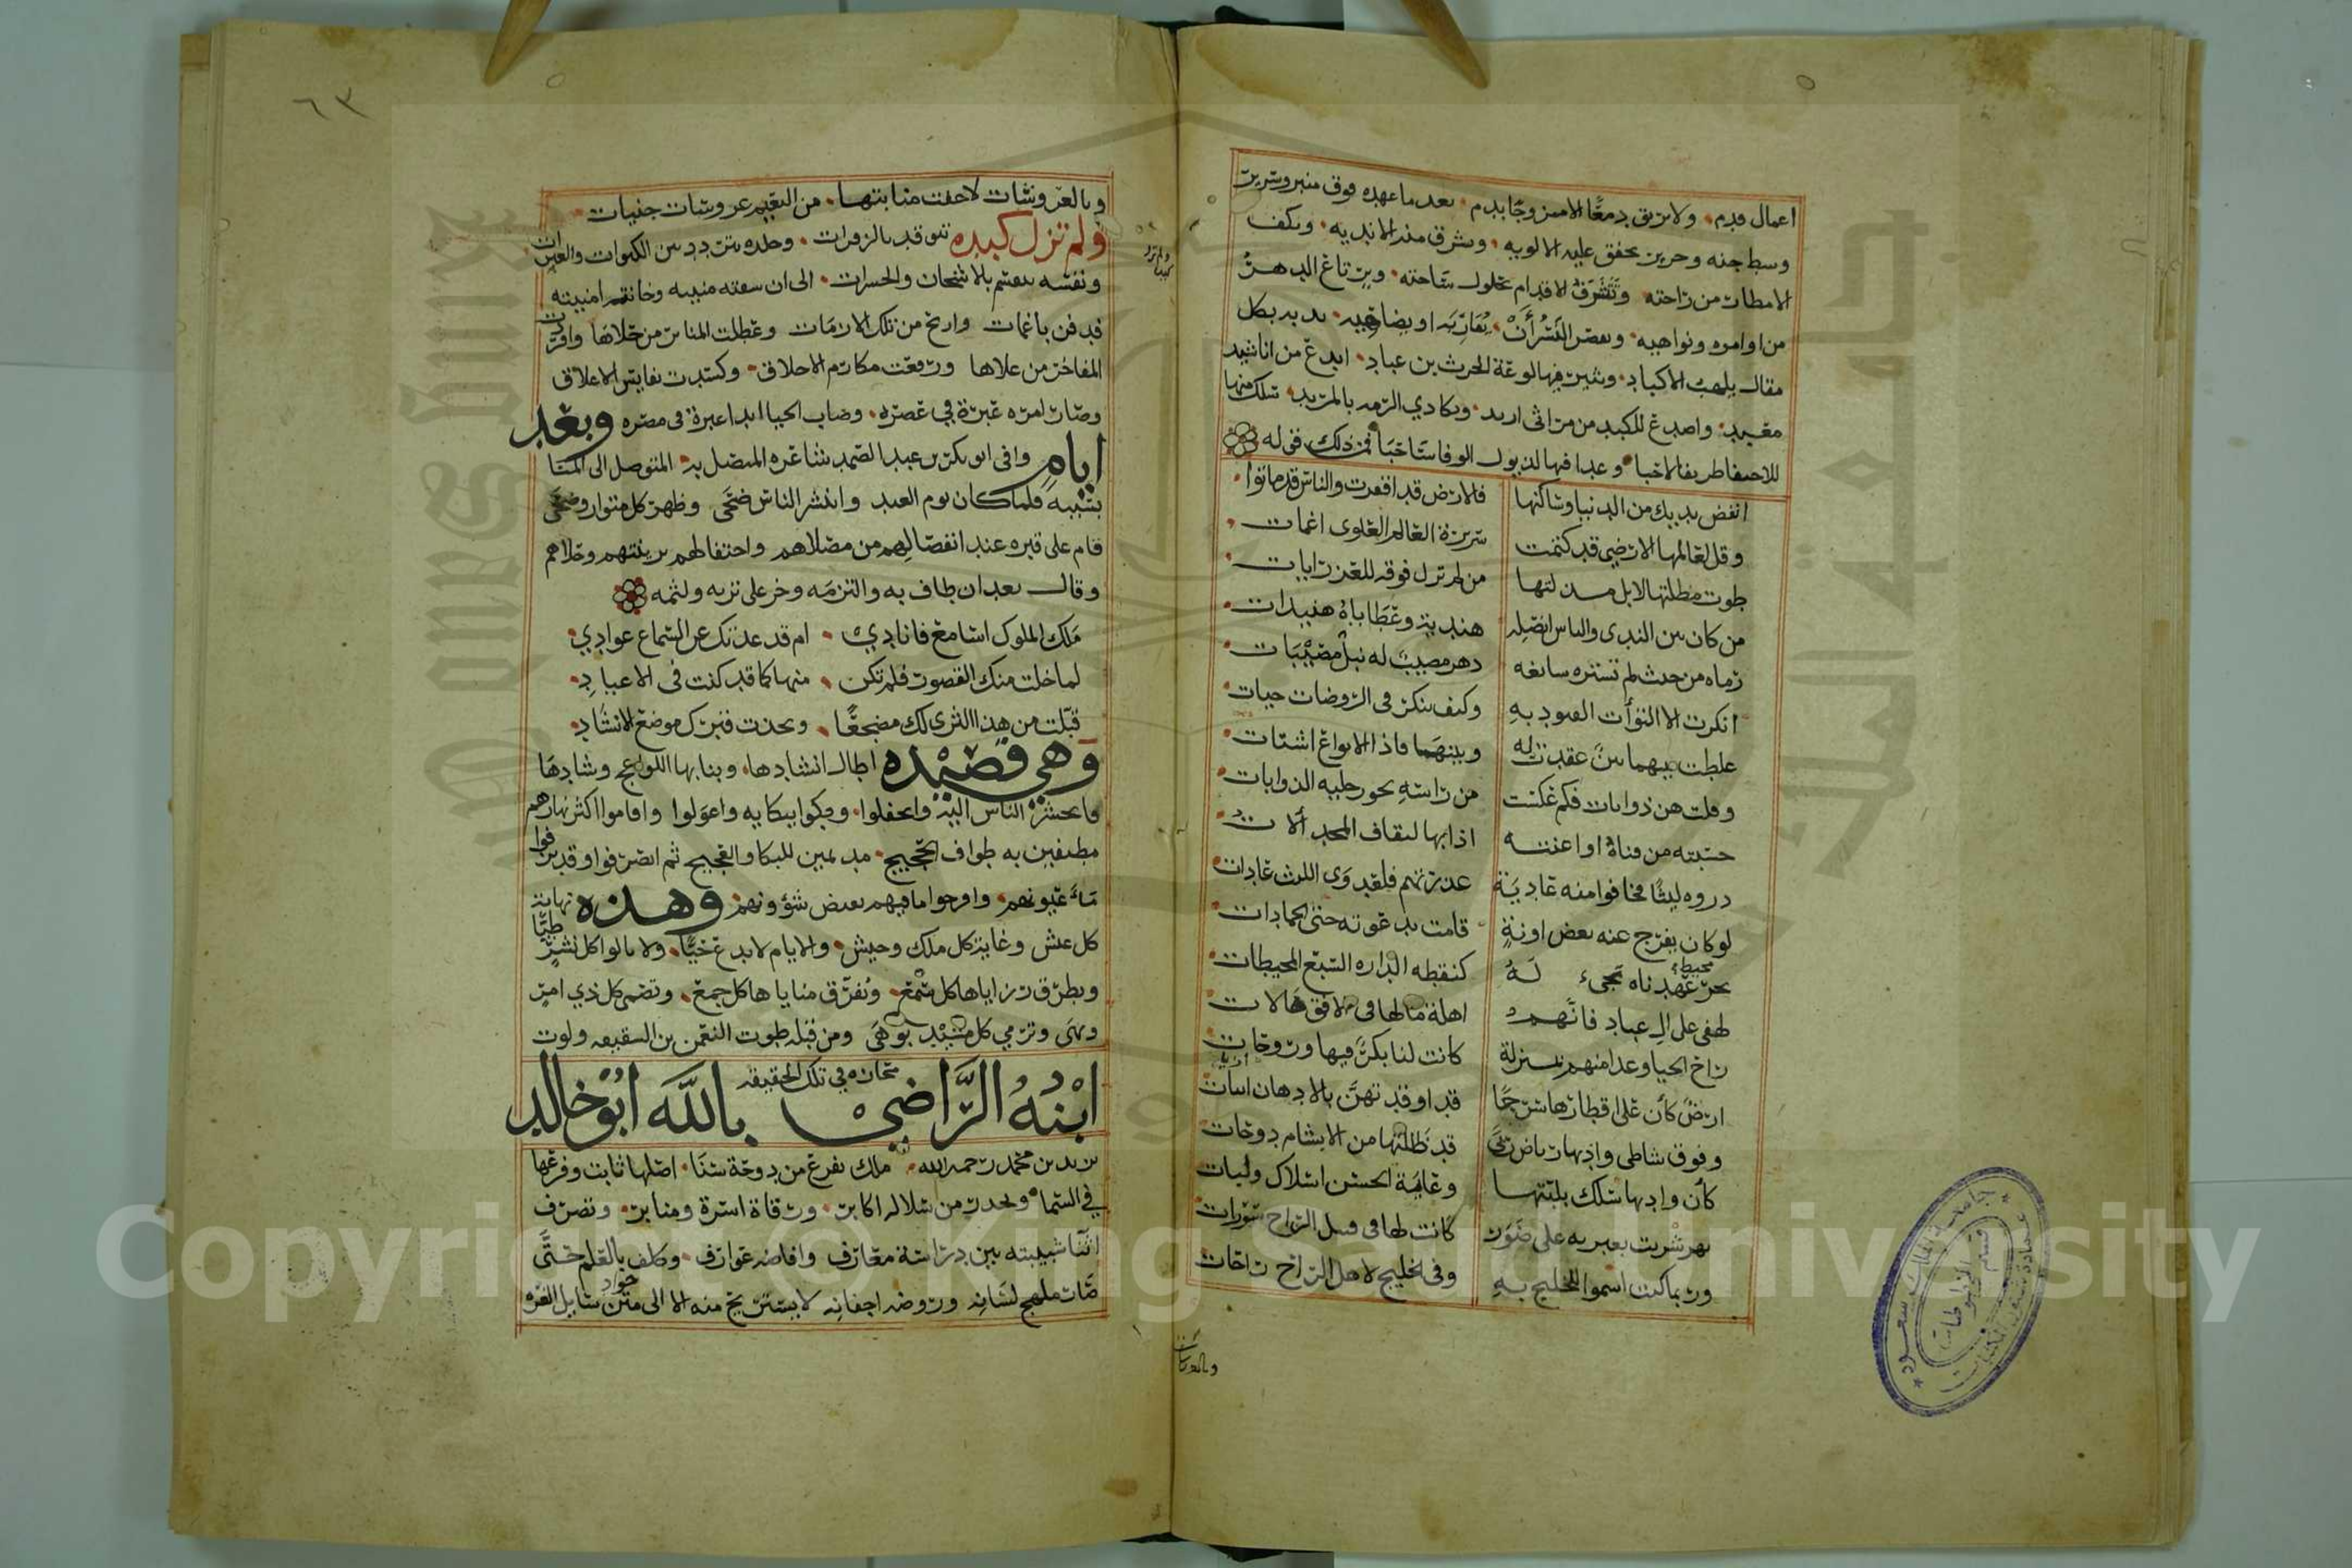 اعمال قدم ولا يريق دمعًا الا ممزوجًا بدم بعد ما عهده فوق منبر وسرير
وسط جنه وحرير تخفق عليه الالويه وتشرق منه الانديه وتكف
الامطار من راحته وتتشرف الاقدام بحلول ساحته ويرتاع الدهر
من اوامره ونواهيه ويقصر النسر أن يقاربه او يضاهيه ندبه بكل
مقال يلهب الاكباد ويثير فيها لوعة الحرث بن عباد ابدع من اناشيد
معبد واصدع للكبد من مراثى اربد وبكا ذي الرمه بالمربد سلك فيها
للاحتفا طريقا لاحبا وغدا فيها لذيول الوفا ساحبا فمن ذلك قوله
انفض يديك من الدنيا وساكنها فالارض قد اقفرت والناس قد ماتوا
وقل لعالمها الارضي قد كتمت سريرة العالم العلوى اغمات
طوت مظلتها لا بل مذلتها من لم تزل فوقه للعز رايات
من كان بين الندى والباس انصله هندية وعطاياه هنيدات
رماه من حيث لم تستره سابغه دهر مصيب له نبل مصيبات
انكرت الا التوأت القيود به وكيف تنكر فى الروضات حيات
غلطت بينهما بين عقدت له وبينهما فاذا الانواع اشتات
وقلت هن ذوابات فكم عكست من راسه نحو رجليه الذوابات
حسبته من قناة او اعنته اذا بها لثقاف المجد ألات
دروه ليثًا فخافوا منه عادية عذرتهم فلقدوى الليث عادات
لو كان يفرج عنه بعض اونة قامت بدعوته حتى الجمادات
بحر محيط عهدناه تجىء له كنقطه الداره السبع المحيطات
لهفى على ال عباد فانهم اهلة مالها فى الافق هالات
راح الحيا وغدا منهم بمنزلة كانت لنا بكر فيها وروحات
ارض كأن على اقطارها سرجًا قد اوقدتهن بالادهان ابيات
وفوق شاطى واديها رياض ربى قد ظللتها من الانشام دوحات
كأن واديها سلك بلبتها وغاية الحسن اسلاك ولبات
نهر شربت بعبريه على صور كانت لها فى قبل الراح سورات
وربما كنت اسموا للخليج به وفى الخليج لاهل الراح راحات
وبالعروشات
وبالعروشات لاحفت منابتها من النعيم عروشات جنيات
ولم تزل كبده تتوقد بالزفرات وخلده يتردد بين النكبات والعثرات
ونفسه تنقسم بالاشجان والحسرات الى ان سقته منيته وخانته امنيته
فدفن باغمات واريح من تلك الازمات وعطلت المآثر من حلاها وافردت
المفاخر من علاها ورفعت مكارم الاخلاق وكسدت نفايس الاعلاق
وصار امره عبرة في عصره وصاب الحيا ابدا عبرة فى مصره وبعد
ايام وافى ابو بكر بن عبد الصمد شاعره المتصل به المتوصل الى المنا
بسببه فلما كان يوم العيد وانتشر الناس ضحى وظهر كل متوار وضحى
قام على قبره عند انفصالهم من مصلاهم واحتفالهم بزينتهم وحلاهم
وقال بعد ان طاف به والتزمه وخر على تربه ولثمه
ملك الملوك اسامع فانادي ام قد عدتك عن السماع عوادي
لما خلت منك القصور فلم تكن فيها كما قد كنت فى الاعياد
قبلت من هذا الثرى لك مضجعًا وتخذت قبرك موضع الانشاد
وهي قصيده اطال انشادها وبنا بها اللواعج وشادها
فانحشر الناس اليه واحفلوا وبكوا ببكايه واعولوا واقاموا اكثر نهارهم
مطيفين به طواف الحجيج مديمين للبكا والعجيج ثم انصرفوا وقد نزفوا
ماء عيونهم واقرحوا ماقيهم بفيض شؤونهم وهذه نهاية
كل عيش وغاية كل ملك وجيش والايام لا تدع حيًّا ولا تالوا كل نشر طيًّا
وتطرق رزاياها كل سمع وتفرق مناياها كل جمع وتصمى كل ذي امر
ونهى وترمي كل مشيد بوهى ومن قبله طوت النعمن بن الشقيقه ولوت
مجازه في تلك الحقيقه
ابنه الراضي بالله ابو خالد
يزيد بن محمد رحمه الله ملك تفرع من دوحة سنا اصلها ثابت وفرعها
في السما وتحدر من سلاله اكابر ورقاة اسرة ومنابر وتصرف
اثنا شبيبته بين دراسة معارف وافاضه عوارف وكلف بالعلم حتى
صار ملهج لسانه وروضه اجفانه لا يستريح منه الا الى متن جواد سايل الغره
٦٣